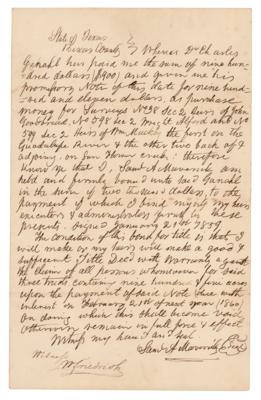 State of Texas
Bexar County } Whereas Dr Charles
Ganahl has paid me the sum of nine hun-
dred dollars ($900) and given me his
promissory Note of this date for nine hund-
red and eleven dollars, as purchase
money for Surveys No 58 Sec 2, heirs of John
No 598 Sec 2 Alford and No
599 Sec 2 Heirs of Wm the first on the
Guadalupe River & the other two back of &
adjoining, on creek: therefore
Know ye that I, Sam A Maverick am
held and firmly bound unto said Ganahl
in the sum of two thousand dollars, to the
payment of which I bind myself my heirs
executors & administrators firmly by these
presents. Signed January 21st 1859
The Condition of this bond for title is that I
will make or my heirs will make a good &
sufficient Title Deed with Warranty against
the claims of all persons whomsoever for said
three tracts containing nine hundred & five acres
upon the payment of said Note this with
interest on February 21st of next year 1860,
On doing which this shall become void
otherwise remain in full force & effect
Witness my hand and seal
Witness Sam A Maverick {Seal}
W Friedrich